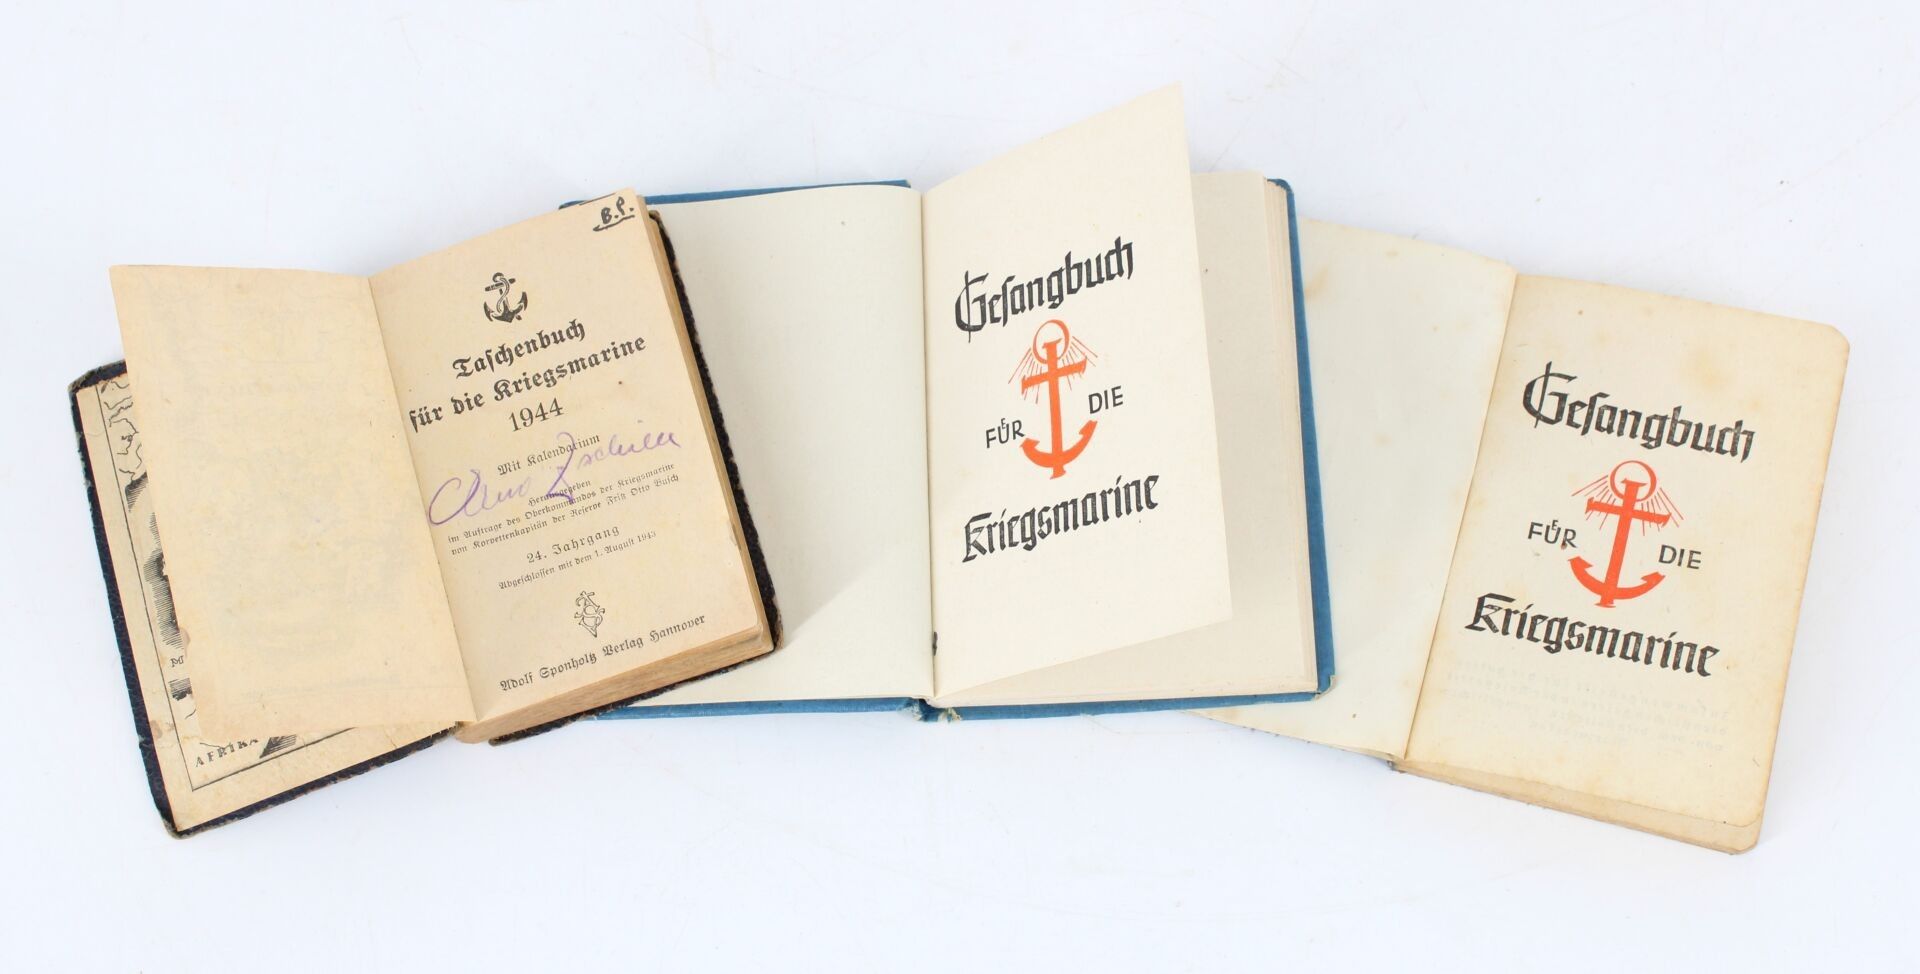 B.P.
Taſchenbuch
für die Kriegsmarine
1944
Mit Kalendarium
Herausgegeben
im Auftrage des Oberkommandos der Kriegsmarine
von Korvettenkapitän der Reserve Fritz Otto Busch
24. Jahrgang
Abgeſchloſſen mit dem 1. August 1943
Adolf Sponholtz Verlag Hannover
AFRIKA
Geſangbuch
FÜR DIE
Kriegsmarine
Geſangbuch
FÜR DIE
Kriegsmarine